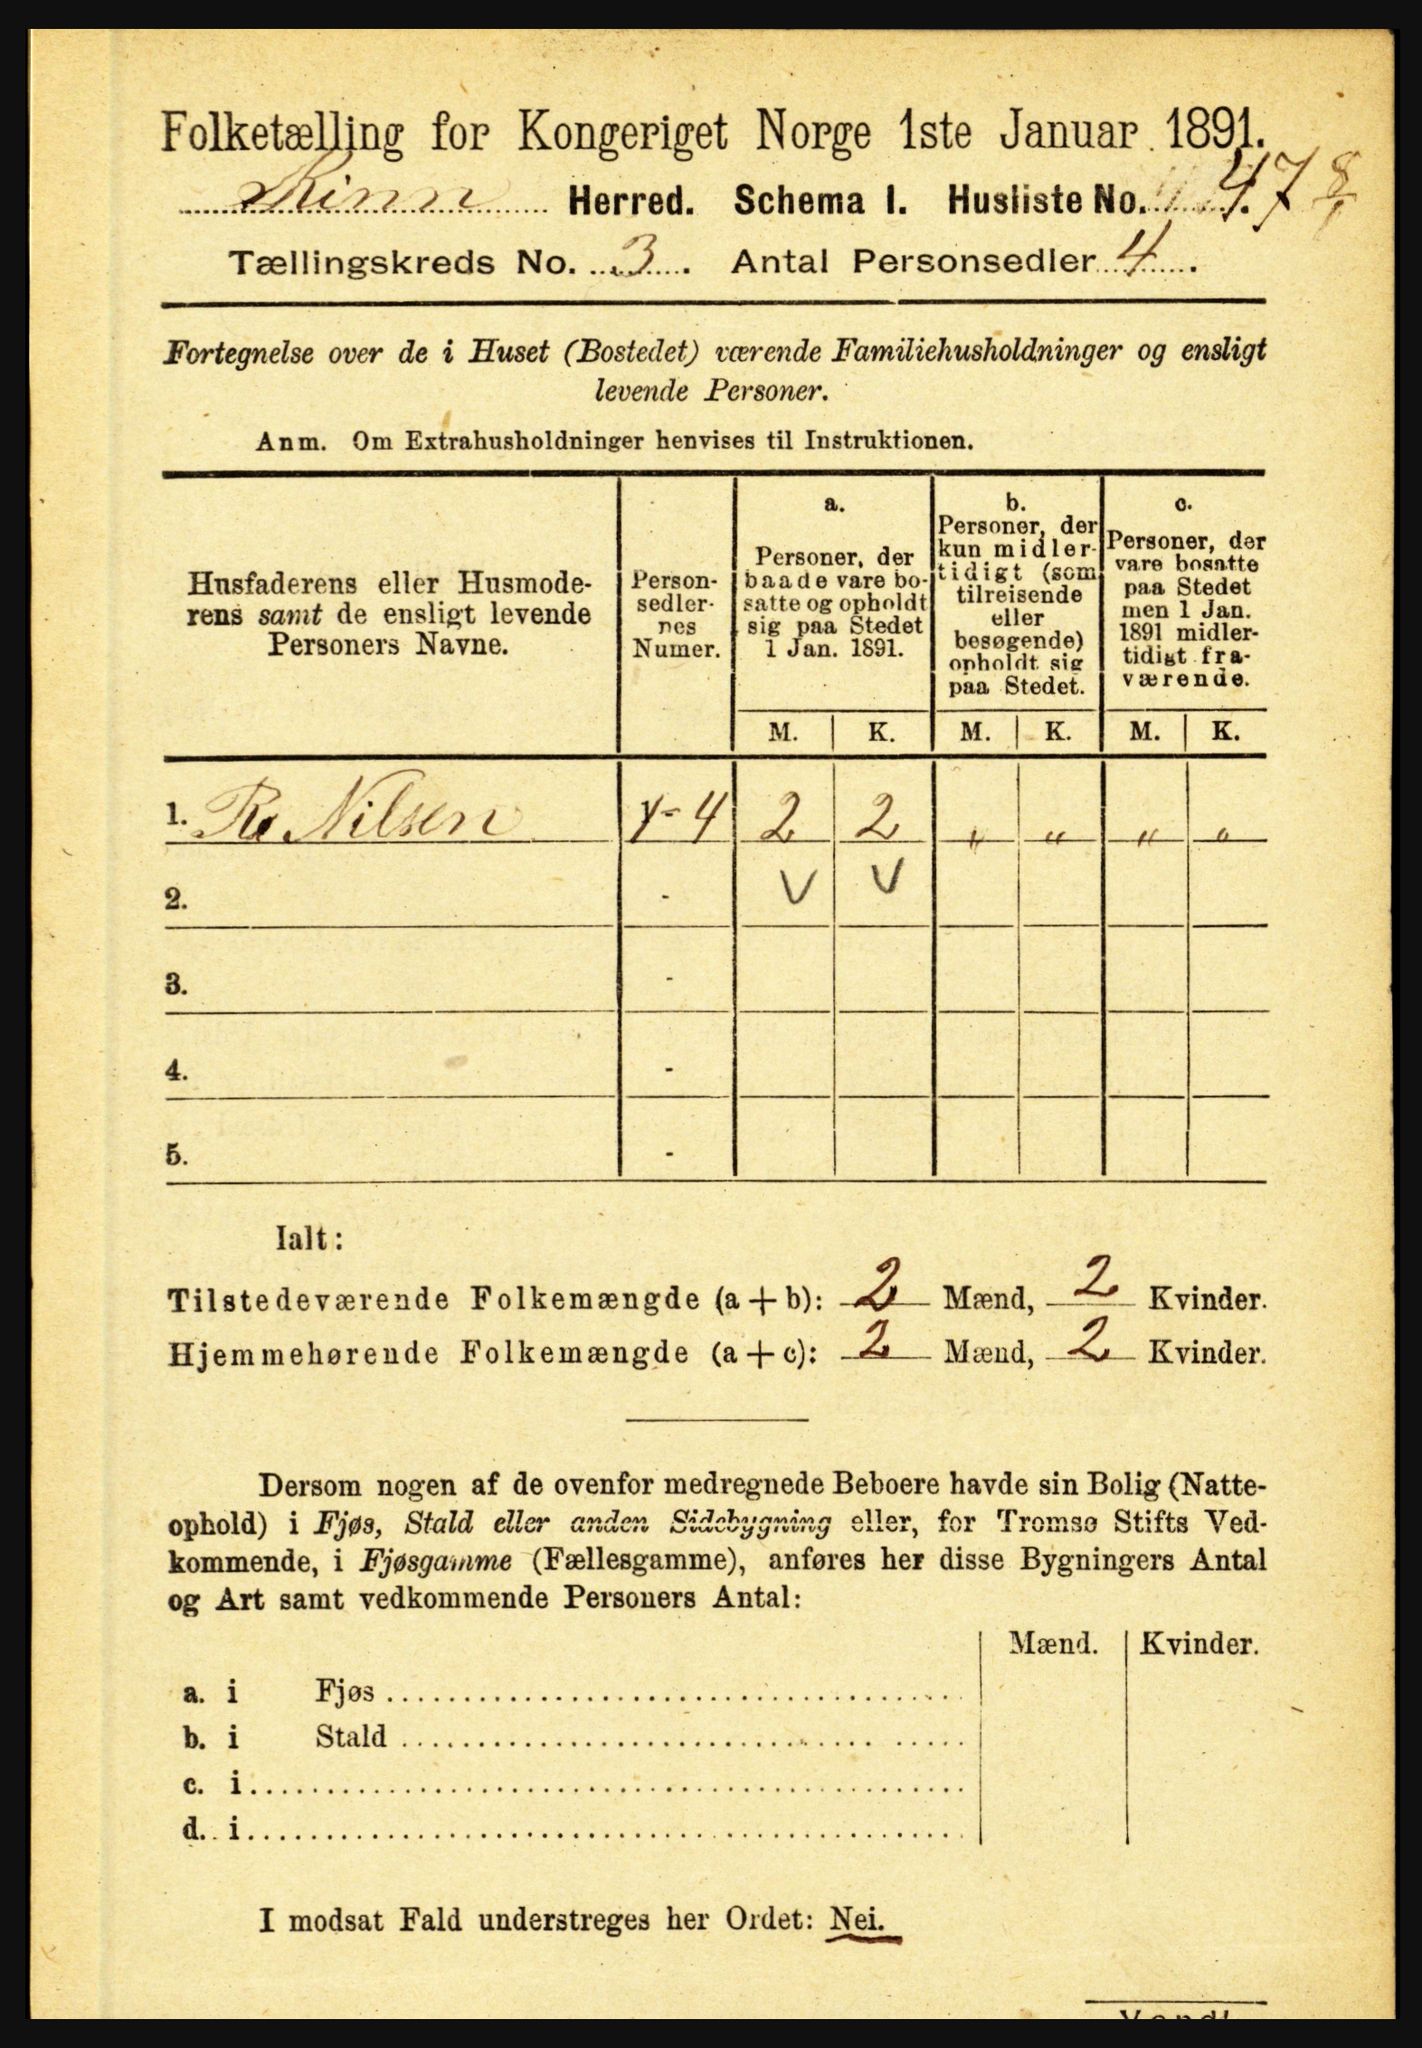 Folketælling for Kongeriget Norge 1ste Januar 1891.
Kinn Herred. Schema I. Husliste No. 47 8/1
Tællingskreds No. 3. Antal Personsedler 4.
Fortegnelse over de i Huset (Bostedet) værende Familiehusholdninger og ensligt
levende Personer.
Anm. Om Extrahusholdninger henvises til Instruktionen.
Husfaderens eller Husmode-
rens samt de ensligt levende
Personers Navne.
Person-
sedler-
nes
Numer.
a.
Personer, der
baade vare bo-
satte og opholdt
sig paa Stedet
1 Jan. 1891.
b.
Personer, der
kun midler-
tidigt (som
tilreisende
eller
besøgende)
opholdt sig
paa Stedet.
c.
Personer, der
vare bosatte
paa Stedet
men 1 Jan.
1891 midler-
tidigt fra-
værende.
M. K. M. K. M. K.
1. Nilsen 1-4 2 2 „ „ „ „
2. - V V
3. -
4. -
5. -
Ialt:
Tilstedeværende Folkemængde (a+b): 2 Mænd, 2 Kvinder.
Hjemmehørende Folkemængde (a+c): 2 Mænd, 2 Kvinder.
Dersom nogen af de ovenfor medregnede Beboere havde sin Bolig (Natte-
ophold) i Fjøs, Stald eller anden Sidebygning eller, for Tromsø Stifts Ved-
kommende, i Fjøsgamme (Fællesgamme), anføres her disse Bygningers Antal
og Art samt vedkommende Personers Antal:
Mænd. Kvinder.
a. i Fjøs
b. i Stald
c. i
d. i
I modsat Fald understreges her Ordet: Nei.
Vend!